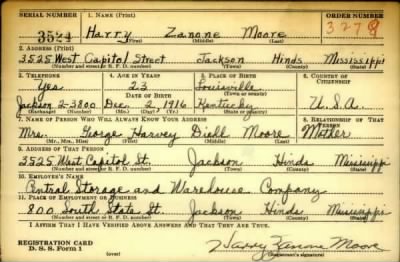 SERIAL NUMBER 1. NAME (Print) ORDER NUMBER
3524 Harry Zanone Moore 3278
(First) (Middle) (Last)
2. ADDRESS (Print)
3525 West Capitol Street Jackson Hinds Mississippi
(Number and street or R. F. D. number) (Town) (County) (State)
3. TELEPHONE 4. AGE IN YEARS 5. PLACE OF BIRTH 6. COUNTRY OF CITIZENSHIP
Yes 23 Louisville
DATE OF BIRTH (Town or county)
Jackson 2-3800 Dec. 2, 1916 Kentucky U.S.A.
(Exchange) (Number) (Mo.) (Day) (Yr.) (State or country)
7. NAME OF PERSON WHO WILL ALWAYS KNOW YOUR ADDRESS 8. RELATIONSHIP OF THAT PERSON
Mrs. George Harvey Diell Moore Mother
(Mr., Mrs., Miss) (First) (Middle) (Last)
9. ADDRESS OF THAT PERSON
3525 West Capitol St. Jackson Hinds Mississippi
(Number and street or R. F. D. number) (Town) (County) (State)
10. EMPLOYER'S NAME
Central Storage and Warehouse Company
11. PLACE OF EMPLOYMENT OR BUSINESS
800 South State St. Jackson Hinds Mississippi
(Number and street or R. F. D. number) (Town) (County) (State)
I AFFIRM THAT I HAVE VERIFIED ABOVE ANSWERS AND THAT THEY ARE TRUE.
REGISTRATION CARD
D. S. S. Form 1 (over) Harry Zanone Moore
(Registrant's signature)